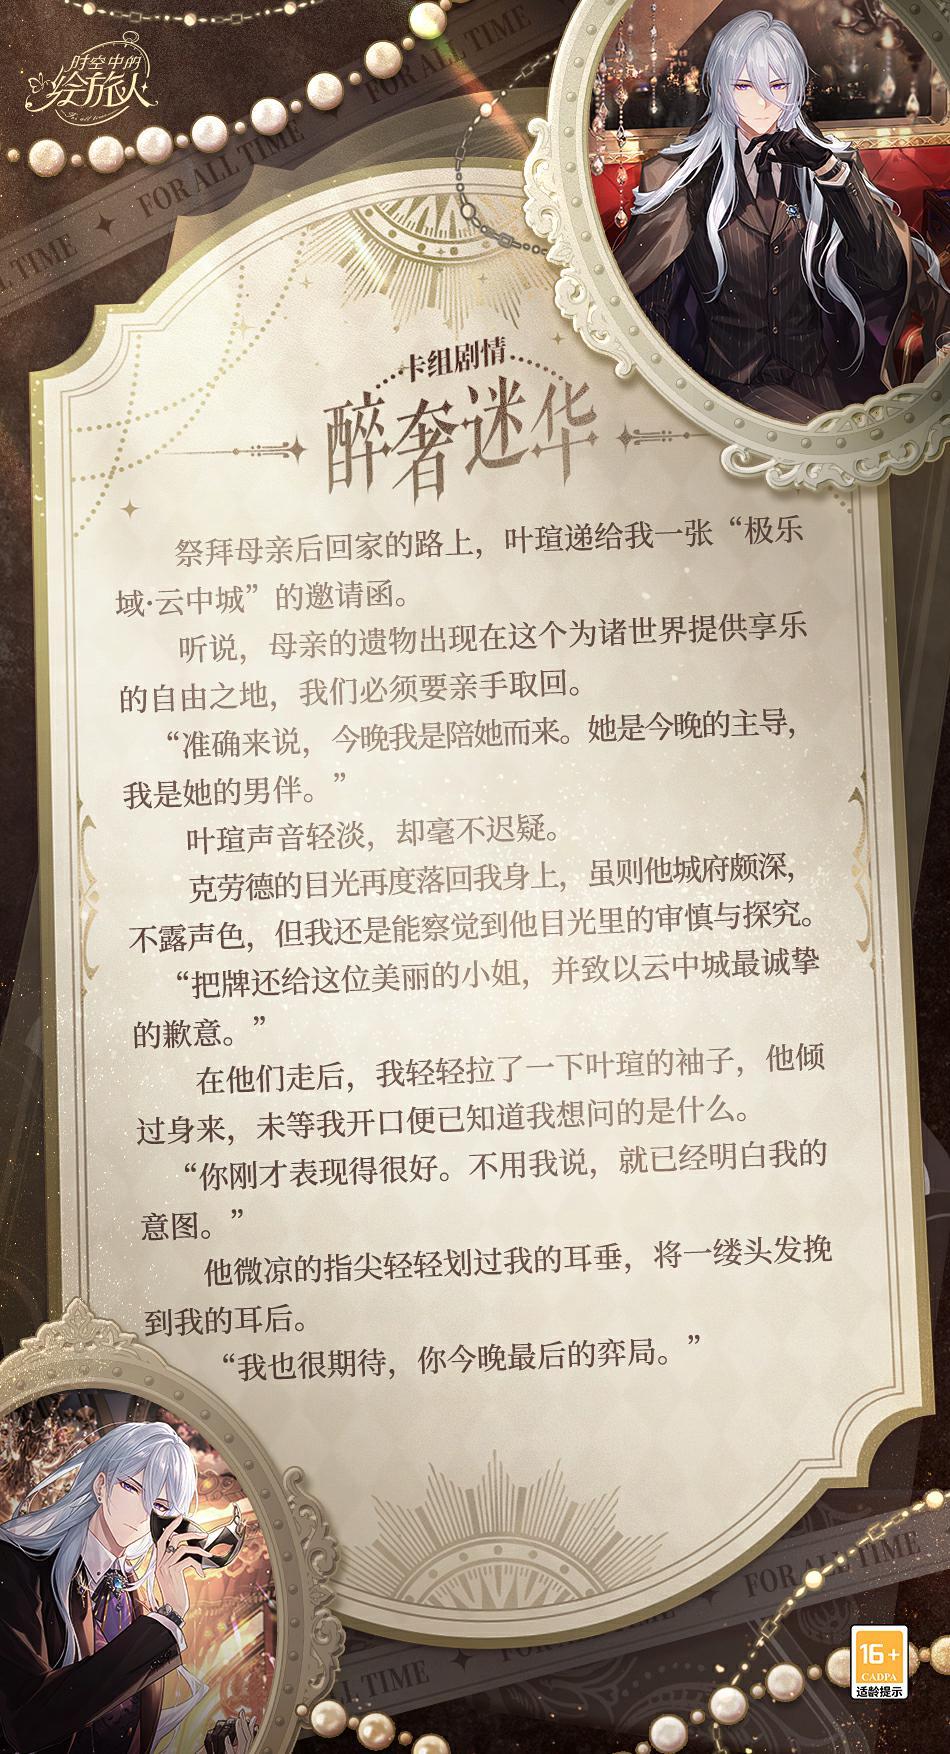 时空中的
绘旅人
For all time
FOR ALL TIME
FOR ALL TIME
TIME
卡组剧情
醉奢迷华
祭拜母亲后回家的路上，叶瑄递给我一张“极乐
域·云中城”的邀请函。
听说，母亲的遗物出现在这个为诸世界提供享乐
的自由之地，我们必须要亲手取回。
“准确来说，今晚我是陪她而来。她是今晚的主导，
我是她的男伴。”
叶瑄声音轻淡，却毫不迟疑。
克劳德的目光再度落回我身上，虽则他城府颇深，
不露声色，但我还是能察觉到他目光里的审慎与探究。
“把牌还给这位美丽的小姐，并致以云中城最诚挚
的歉意。”
在他们走后，我轻轻拉了一下叶瑄的袖子，他倾
过身来，未等我开口便已知道我想问的是什么。
“你刚才表现得很好。不用我说，就已经明白我的
意图。”
他微凉的指尖轻轻划过我的耳垂，将一缕头发挽
到我的耳后。
“我也很期待，你今晚最后的弈局。”
FOR ALL TIME
FOR ALL TIME
LL TIME
16+
CADPA
适龄提示